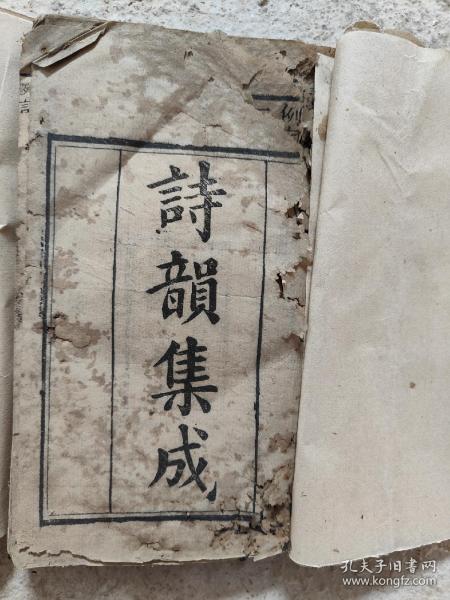 詩韻集成
例言
孔夫子旧书网
www.kongfz.com